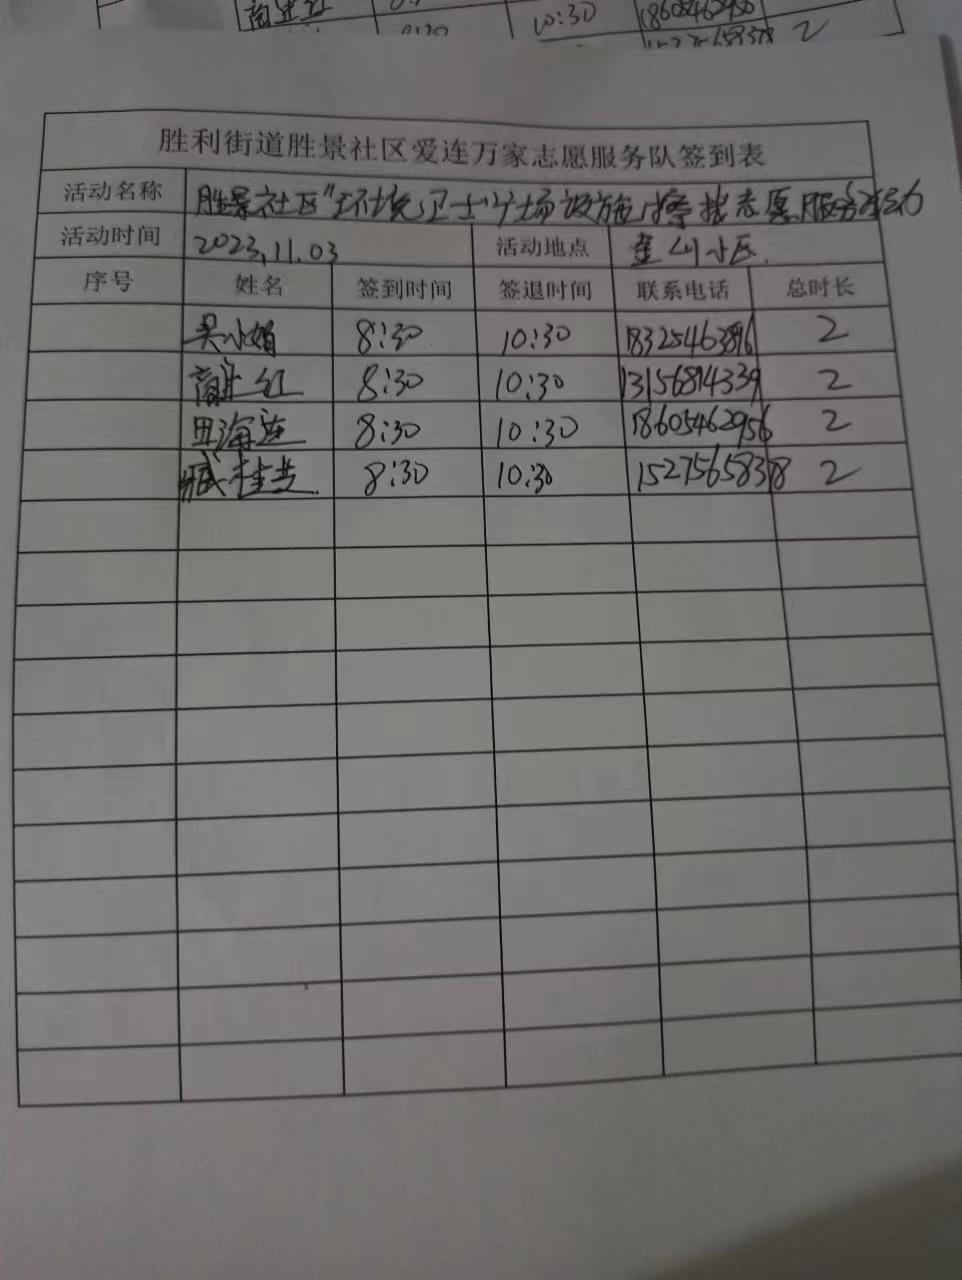 10:30 18605462956
15275658378 2
胜利街道胜景社区爱连万家志愿服务队签到表
活动名称 胜景社区"环境卫士"广场设施擦拭志愿服务活动
活动时间 2023.11.03 活动地点 金山小区.
序号 姓名 签到时间 签退时间 联系电话 总时长
吴冰娟 8:30 10:30 18325463896 2
商建红 8:30 10:30 13156814339 2
田海莲 8:30 10:30 18605462956 2
臧桂芸 8:30 10:30 15275658378 2